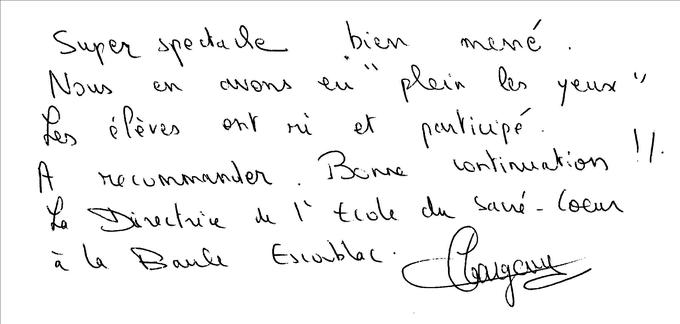 Super spectacle bien mené.
Nous en avons eu "plein les yeux"
Les élèves ont ri et participé.
A recommander. Bonne continuation !!.
La Directrice de l'Ecole du Sacré-Coeur
à la Baule Escoublac.